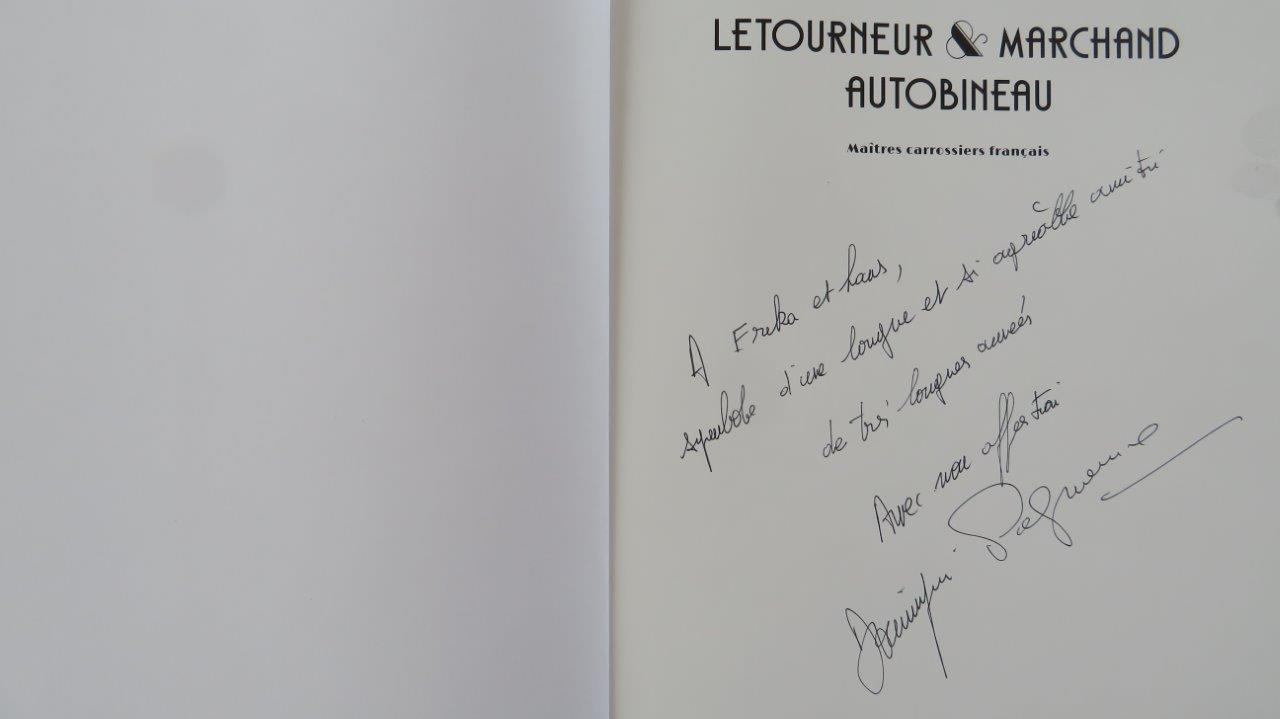 LETOURNEUR & MARCHAND
AUTOBINEAU
Maîtres carrossiers français
A Erika et hans,
symbole d'une longue et si agréable amitié
de très longues années
Avec mon affection
Dominique